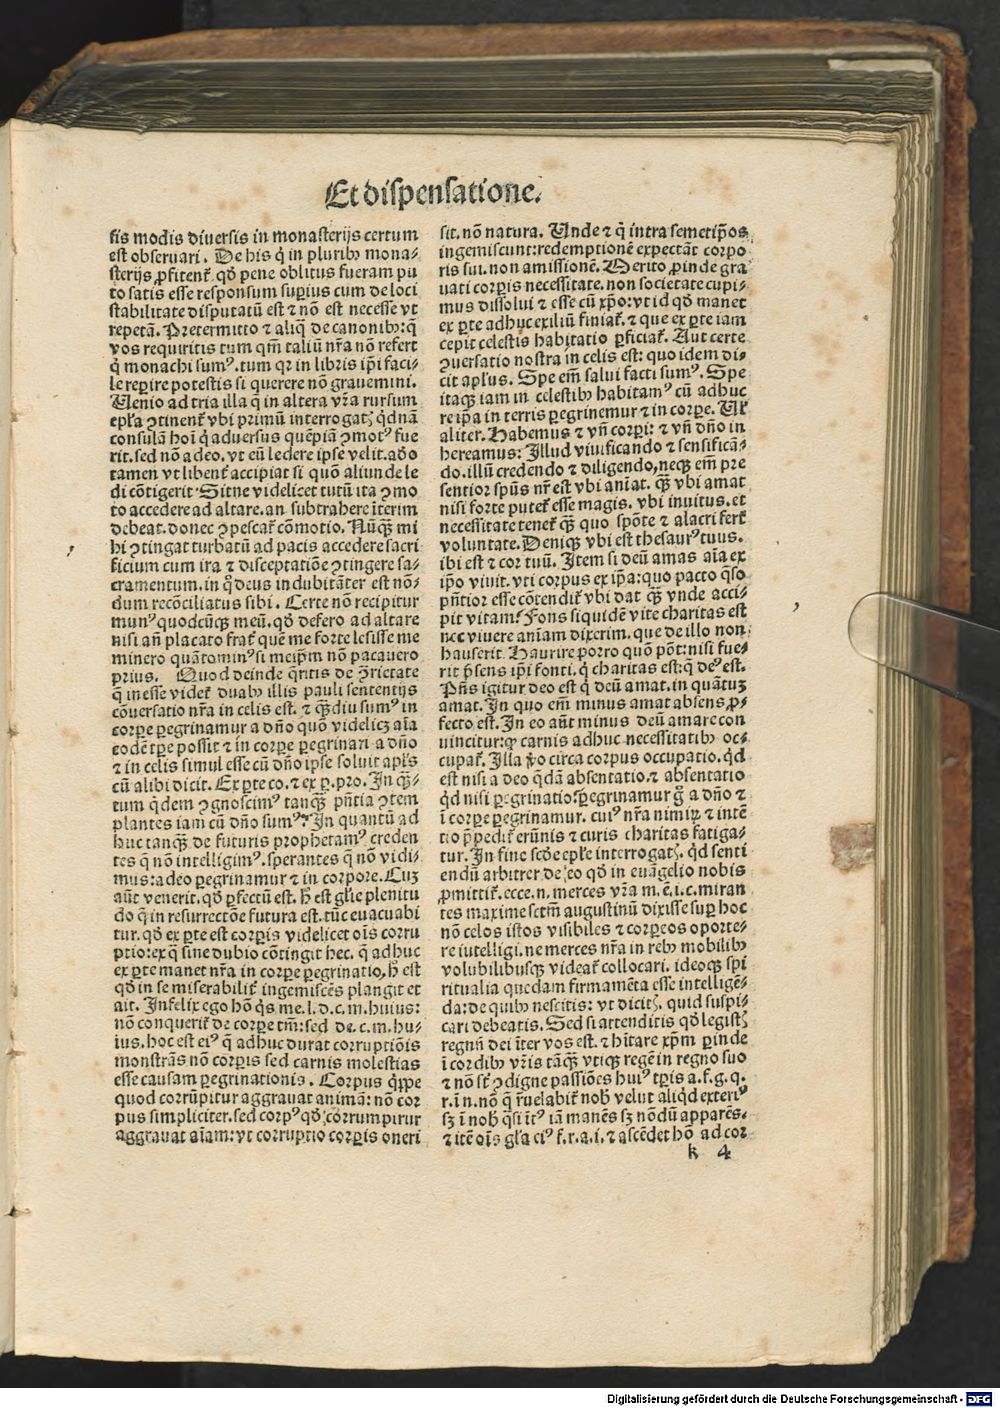 Et dispensatione.
sis modis diuersis in monasterijs certum
est obseruari. De his q̃ in pluribꝫ mona-
sterijs ꝓfitent᷑. qð pene oblitus fueram pu
to satis esse responsum suꝑius cum de loci
stabilitate disputatū est ⁊ nō est necesse vt
repetā. Pretermitto ⁊ aliq̃ de canonibꝫ: q̃
vos requiritis tum qm̄ taliū nr̃a nō refert
q̇ monachi sumꝰ. tum qꝛ in libris ip̄i faci-
le reꝑire potestis si querere nō grauemini.
Uenio ad tria illa q̃ in altera vr̃a rursum
epl̃a ꝯtinent᷑ vbi primū interrogatꝭ qdnā
consulā hoī q̇ aduersus quēpiā ꝯmotꝰ fue
rit. sed nō adeo. vt eū ledere ipse velit. adeo
tamen vt libent᷑ accipiat si quō aliunde le
di cōtigerit. Sitne videlicet tutū ita ꝯmo
to accedere ad altare. an subtrahere īterim
debeat. donec ꝯpescat᷑ cōmotio. Nūqꝫ mi
hi ꝯtingat turbatū ad pacis accedere sacri
ficium cum ira ⁊ disceptatiōe ꝯtingere sa-
cramentum. in q̊ deus indubitāter est nō-
dum recōciliatus sibi. Certe nō recipitur
munꝰ quodcūqꝫ meū. qð defero ad altare
nisi añ placato frat᷑ quē me forte lesisse me
minero quātominꝰ si meip̄m nō pacauero
prius. Quod deinde q̇ritis de ꝯ̃rietate
q̃ inesse videt᷑ duabꝫ illis pauli sententijs
cōuersatio nr̃a in celis est. ⁊ qꝫdiu sumꝰ in
corꝑe ꝑegrinamur a dño quō videlicꝫ aīa
eodē tꝑe possit ⁊ in corꝑe ꝑegrinari a dño
⁊ in celis simul esse cū dño ipse soluit apl̃s
cū alibi dicit. Ex ꝑte co. ⁊ ex ꝑ. pro. In qꝫ-
tum q̇dem ꝯgnoscimꝰ tanqꝫ pñtia ꝯtem
plantes iam cū dño sumꝰ. In quantū ad
huc tanqꝫ de futuris prophetamꝰ creden
tes q̃ nō intelligimꝰ. sperantes q̃ nō vidi-
mus: adeo ꝑegrinamur ⁊ in corpore. Cuꝫ
aūt venerit. qð ꝑfectū est. h̄ est gl̃ie plenitu
do q̃ in resurrectōe futura est. tūc euacuabi
tur. qð ex ꝑte est corꝑis videlicet oīs corru
ptio: ex q̃ sine dubio cōtingit hec. q̃ adhuc
ex ꝑte manet nr̃a in corꝑe ꝑegrinatio, h̄ est
qð in se miserabilit᷑ ingemiscēs plangit et
ait. Infelix ego hō q̇s me. l. d. c. m. huius:
nō conquerit᷑ de corꝑe tm̄: sed de. c. m. hu-
ius. hoc est eiꝰ q̃ adhuc durat corruptiōis
monstrās nō corꝑis sed carnis molestias
esse causam ꝑegrinationis. Corpus q̇ppe
quod corrūpitur aggrauat animā: nō cor
pus simpliciter. sed corpꝰ qð corrumpitur
aggrauat aīam: vt corruptio corꝑis oneri
sit. nō natura. Unde ⁊ q̇ intra semetip̄os
ingemiscunt: redemptionē expectāt corpo
ris sui. non amissionē. Merito ꝓinde gra
uati corꝑis necessitate. non societate cupi-
mus dissolui ⁊ esse cū xp̄o: vt id qð manet
ex ꝑte adhuc exiliū finiat᷑. ⁊ que ex ꝑte iam
cepit celestis habitatio ꝑficiat᷑. Aut certe
ꝯuersatio nostra in celis est: quo idem di-
cit apl̃us. Spe em̄ salui facti sumꝰ. Spe
itaqꝫ iam in celestibꝫ habitamꝰ cū adhuc
re ip̄a in terris ꝑegrinemur ⁊ in corꝑe. Ul̃
aliter. Habemus ⁊ vñ corpi: ⁊ vñ dño in
hereamus: Illud viuificando ⁊ sensificā-
do. illū credendo ⁊ diligendo, neqꝫ em̄ pre
sentior spūs nr̃ est vbi aniat. qꝫ vbi amat
nisi forte putet᷑ esse magis. vbi inuitus. et
necessitate tenet᷑ qꝫ quo spōte ⁊ alacri fert᷑
voluntate. Deniqꝫ vbi est thesaurꝰ tuus.
ibi est ⁊ cor tuū. Item si deū amas aīa ex
ip̄o viuit. vti corpus ex ip̄a: quo pacto q̃so
pñtior esse cōtendit᷑ vbi dat qꝫ vnde acci-
pit vitam? Fons siquidē vite charitas est
nec viuere aniam dixerim. que de illo non
hauserit. Haurire porro quō pōt: nisi fue-
rit p̃sens ip̄i fonti. q̇ charitas est: q̇ deꝰ est.
Pñs igitur deo est q̇ deū amat. in quātuꝫ
amat. In quo em̄ minus amat absens ꝓ-
fecto est. In eo aūt minus deū amare con
uincitur: qꝙ carnis adhuc necessitatibꝫ oc-
cupat᷑. Illa ꝟo circa corpus occupatio. q̇d
est nisi a deo q̇dā absentatio. ⁊ absentatio
q̇d nisi ꝑegrinatio? ꝑegrinamur g̊ a dño ⁊
ī corꝑe ꝑegrinamur. cuiꝰ nr̃a nimiꝝ ⁊ intē
tio p̃pedit᷑ erūnis ⁊ curis charitas fatiga-
tur. In fine scd̄e epl̃e interrogatꝭ. q̇d senti
endū arbitrer de eo qð in euāgelio nobis
ꝓmittit᷑. ecce. n. merces vr̃a m. ē. i. c. miran
tes maxime sctm̄ augustinū dixisse suꝑ hoc
nō celos istos visibiles ⁊ corꝑeos oporte-
re intelligi. ne merces nr̃a in rebꝫ mobilibꝫ
volubilibusqꝫ videat᷑ collocari. ideoqꝫ spi
ritualia quedam firmamēta esse intelligē-
da: de quibꝫ nescitis: vt dicitꝭ. quid suspi-
cari debeatis. Sed si attenditis qð legistꝭ
regnū dei īter vos est. ⁊ hītare xp̄m ꝑ inde
ī cordibꝫ vr̃is tāqꝫ vtiqꝫ regē in regno suo
⁊ nō st᷑ ꝯdigne passiōes huiꝰ tꝑis a. f. g. q.
r. ī n. nō q̃ r̄uelabit᷑ nob̄ velut aliq̇d exteriꝰ
sꝫ ī nob̄ q̃si ītꝰ iā manēs sꝫ nōdū apparēs.
⁊ itē oīs gl̃a eiꝰ f. r. a. i. ⁊ ascēdet hō ad cor
k 4
Digitalisierung gefördert durch die Deutsche Forschungsgemeinschaft - DFG